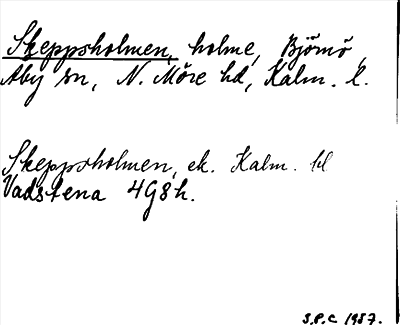 Skeppsholmen, holme, Björnö,
Åby sn, N. Möre hd, Kalm. l.
Skeppsholmen, ek. Kalm. bl
Vadstena 4G8h.
S.P.C 1957.